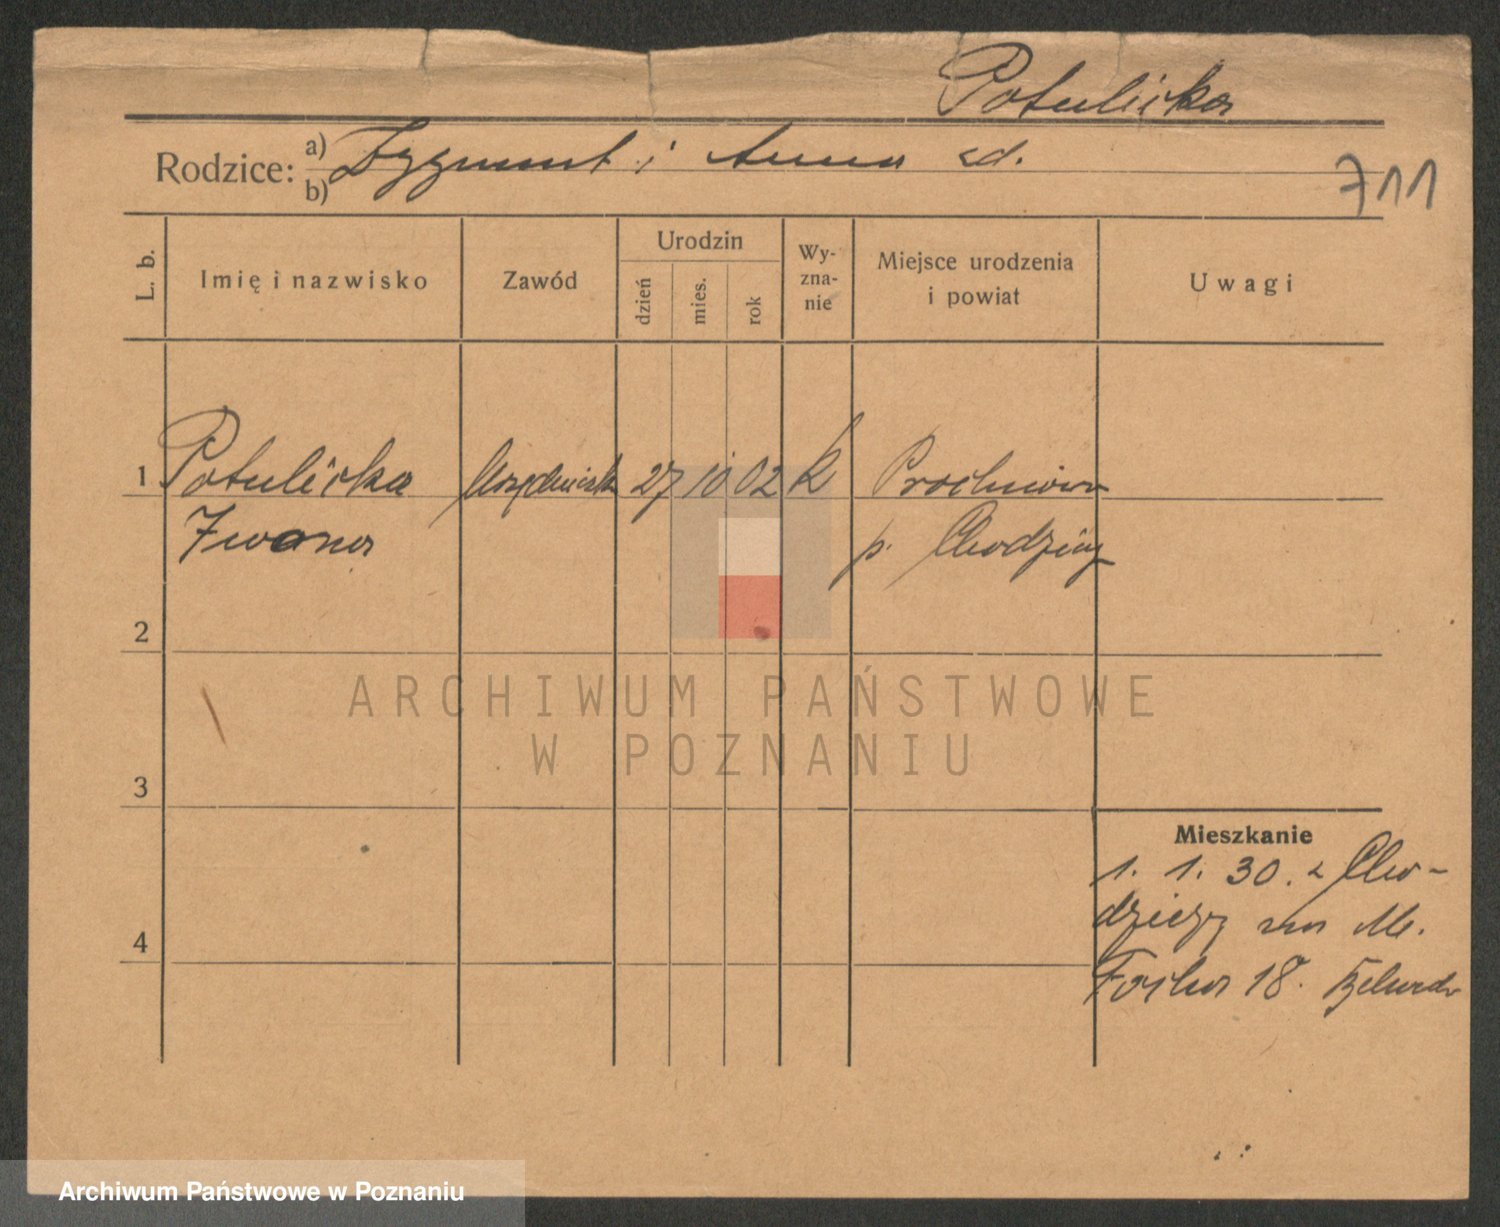 Potulicka
Rodzice: a) b) Zygmunt i Anna zd.
711
L. b.
Imię i nazwisko
Zawód
Urodzin
dzień
mies.
rok
Wy-
zna-
nie
Miejsce urodzenia
i powiat
Uwagi
1 Potulicka 27 10 02 k
Iwona p. Chodzież
2
3
4
Mieszkanie
1. 1. 30. z Cho-
dzieży na M.
Focha 18.
ARCHIWUM PAŃSTWOWE
W POZNANIU
Archiwum Państwowe w Poznaniu